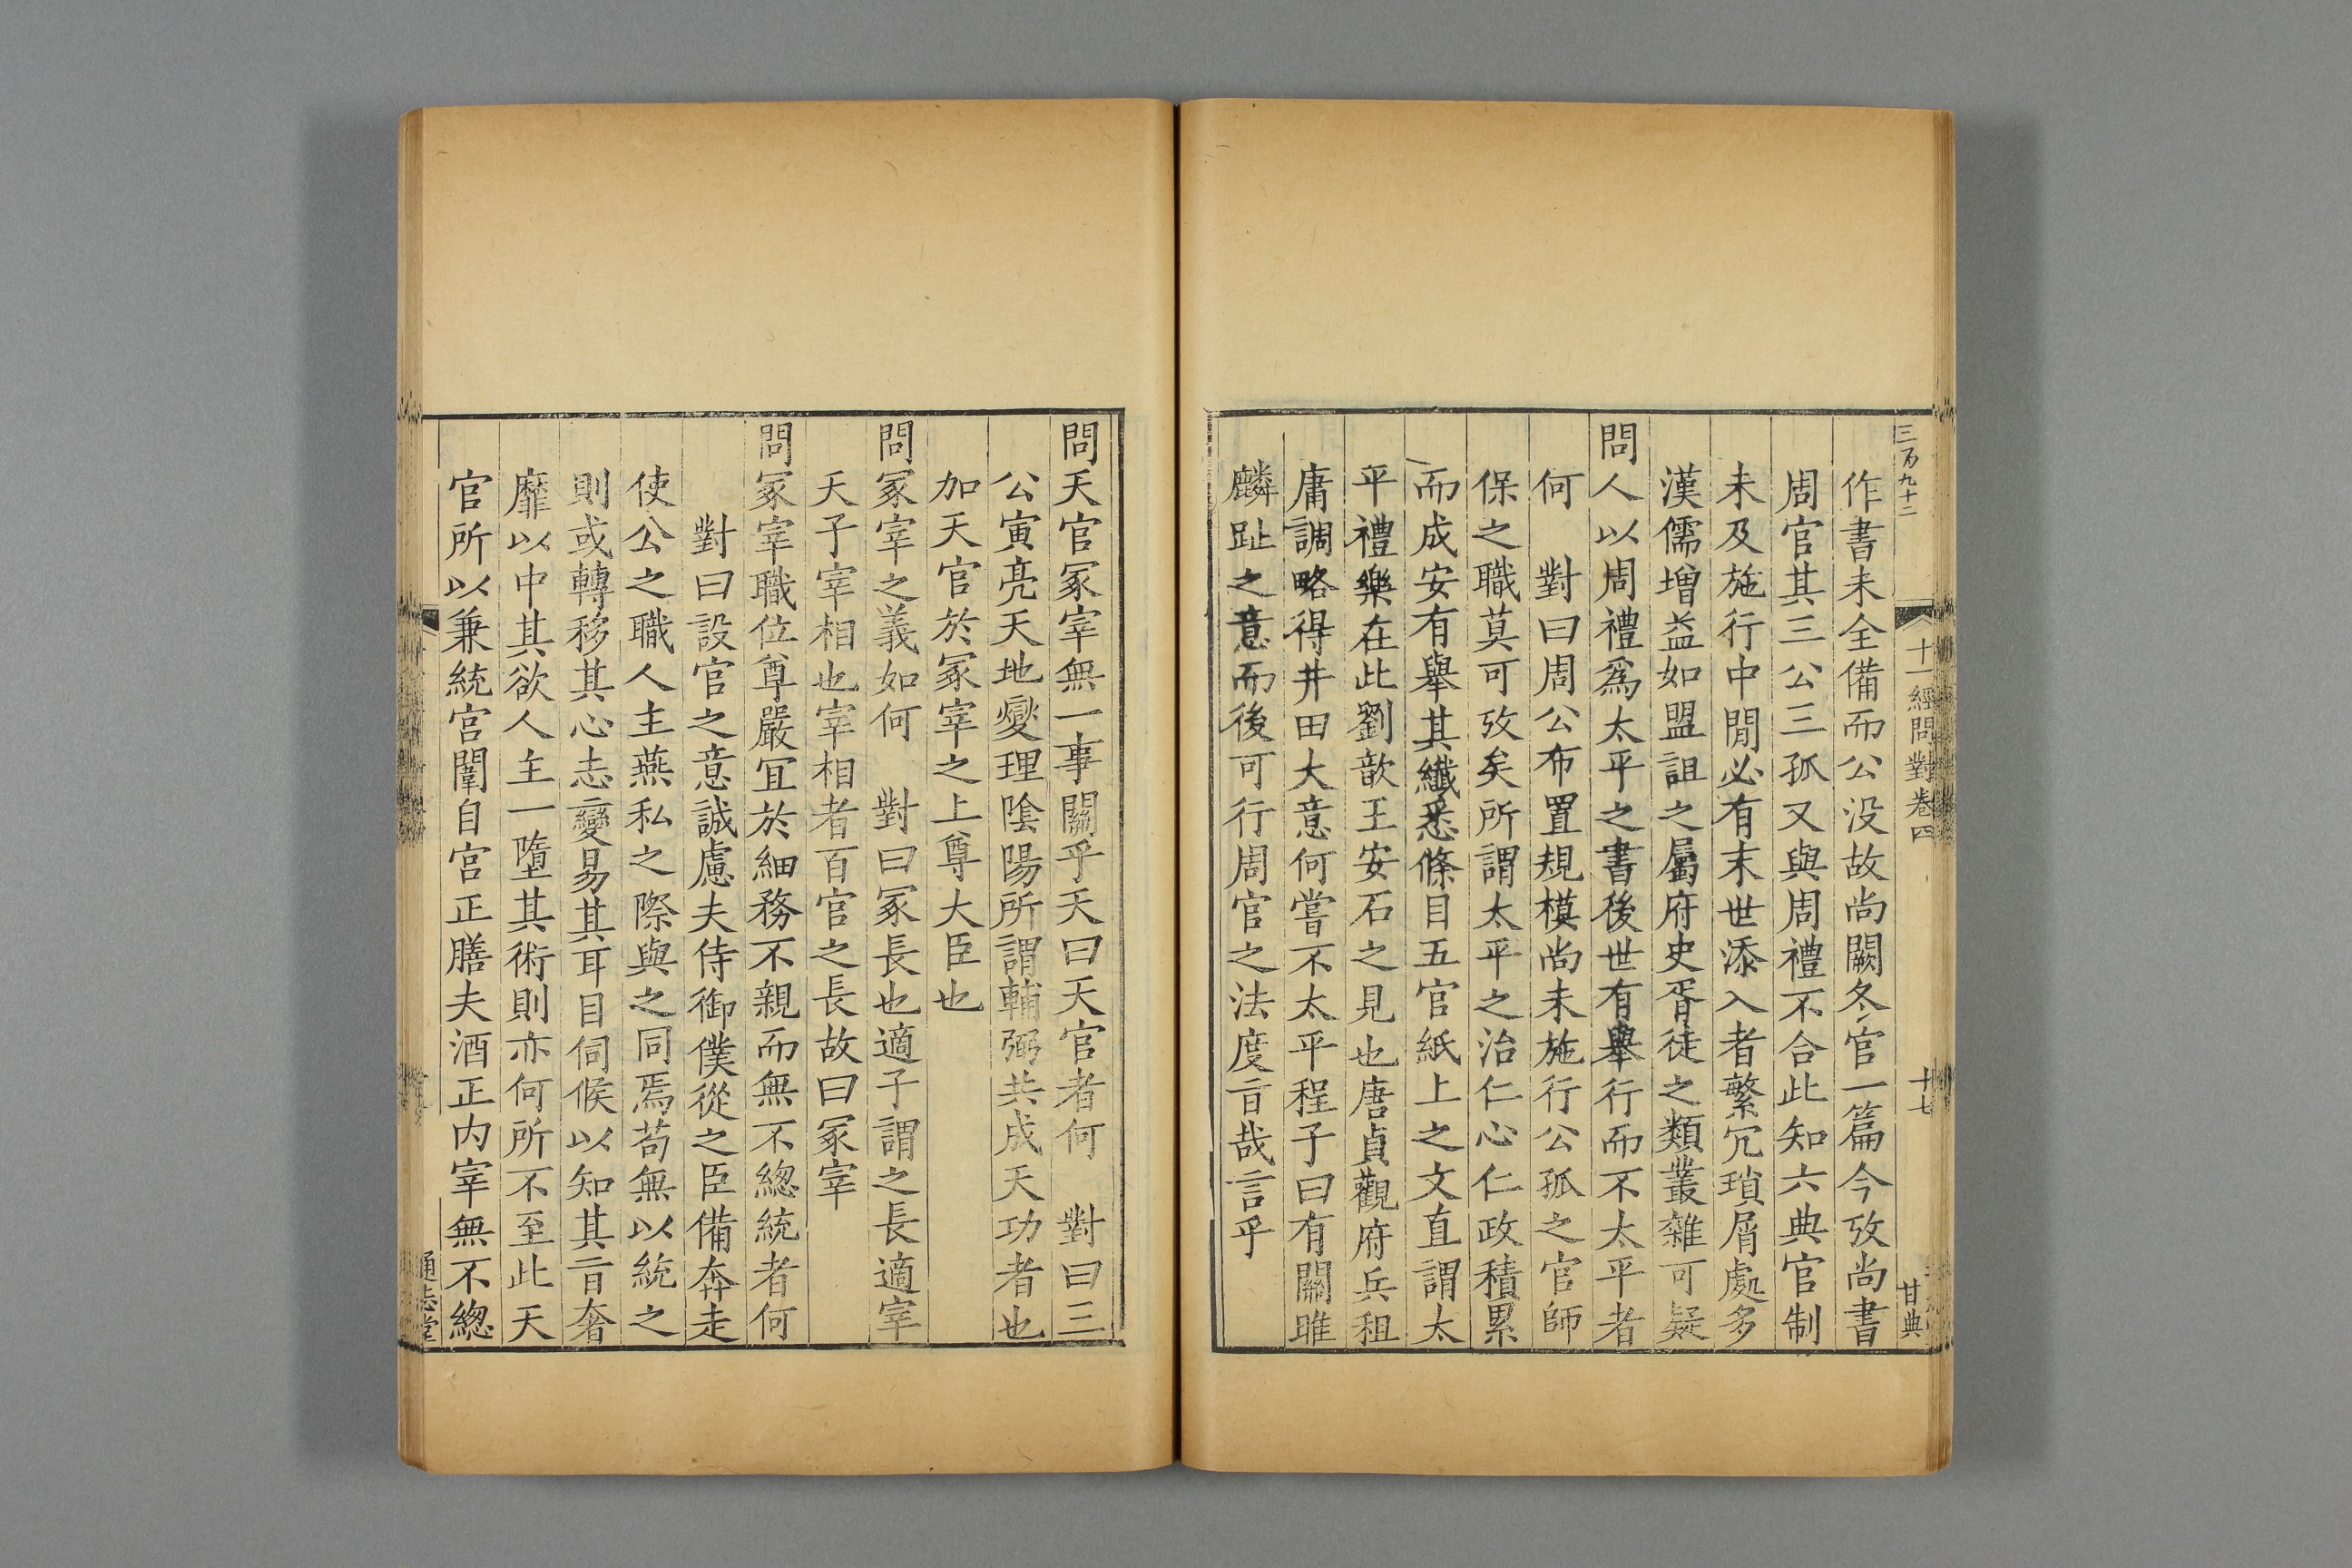 三百九十二
十一經問對卷四
十七
甘典
作書未全備而公没故尚闕冬官一篇今攷尚書
周官其三公三孤又與周禮不合此知六典官制
未及施行中間必有末世添入者繁冗瑣屑處多
漢儒増益如盟詛之屬府史胥徒之類叢雜可疑
問人以周禮爲太平之書後世有舉行而不太平者
何　對曰周公布置規模尚未施行公孤之官師
保之職莫可攷矣所謂太平之治仁心仁政積累
而成安有舉其纖悉條目五官紙上之文直謂太
平禮樂在此劉歆王安石之見也唐貞觀府兵租
庸調略得井田大意何嘗不太平程子曰有關雎
麟趾之意而後可行周官之法度旨哉言乎
問天官冢宰無一事關乎天曰天官者何　對曰三
公寅亮天地燮理陰陽所謂輔弼共成天功者也
加天官於冢宰之上尊大臣也
問冢宰之義如何　對曰冢長也適子謂之長適宰
天子宰相也宰相者百官之長故曰冢宰
問冢宰職位尊嚴冝於細務不親而無不總統者何
對曰設官之意誠慮夫侍御僕從之臣備奔走
使公之職人主燕私之際與之同焉苟無以統之
則或轉移其心志變易其耳目伺候以知其旨奢
靡以中其欲人主一墮其術則亦何所不至此天
官所以兼統宫闈自宫正膳夫酒正内宰無不總
通志堂